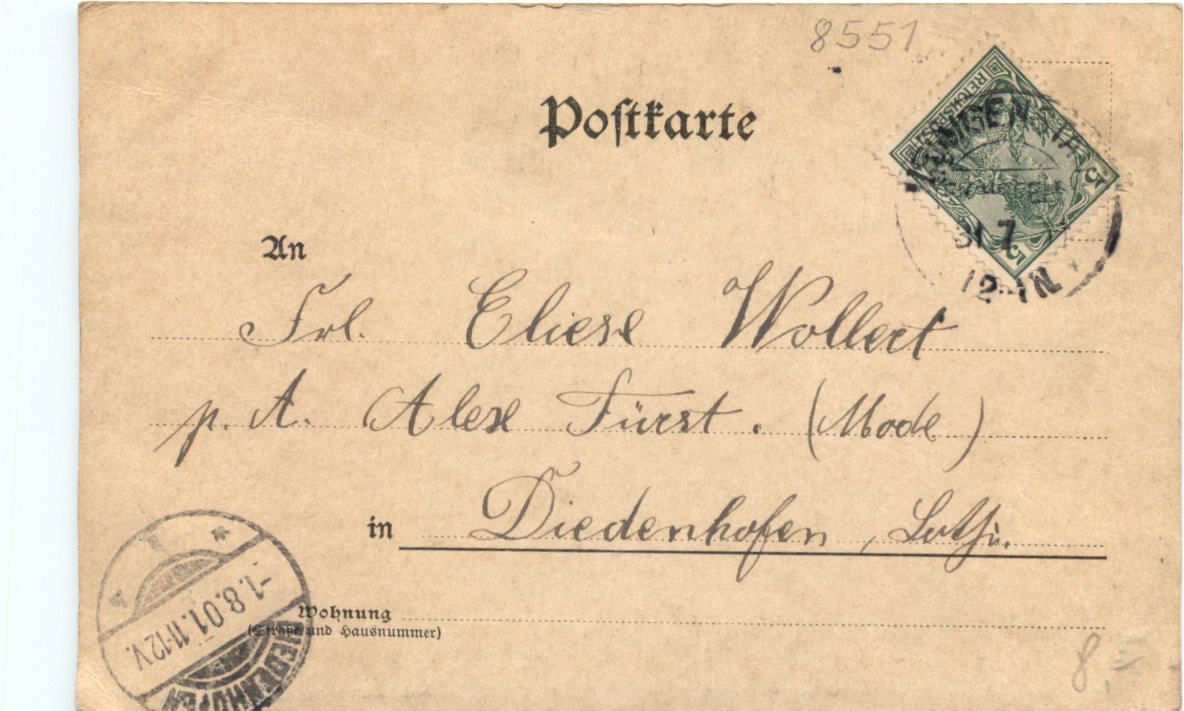 8551
Postkarte
5 5
31 7
12-1N
An
Frl. Eliese Wollert
p. A. Alex Fürst. (Mode)
in Diedenhofen, Lothr.
-1.8.01.11-12V.
DIEDENHOFEN
Wohnung
(Straße und Hausnummer)
8.